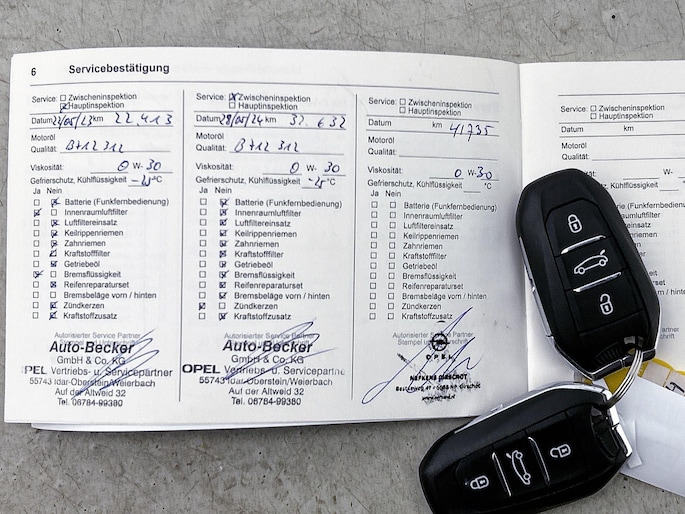 6 Servicebestätigung
Service: Zwischeninspektion
Hauptinspektion
Datum 22/05/23 km 22.413
Motoröl
Qualität: B712 312
Viskosität: 0 W- 30
Gefrierschutz, Kühlflüssigkeit -25°C
Ja Nein
Batterie (Funkfernbedienung)
Innenraumluftfilter
Luftfiltereinsatz
Keilrippenriemen
Zahnriemen
Kraftstofffilter
Getriebeöl
Bremsflüssigkeit
Reifenreparaturset
Bremsbeläge vorn / hinten
Zündkerzen
Kraftstoffzusatz
Autorisierter Service Partner
Auto-Becker
GmbH & Co. KG
OPEL Vertriebs- u. Servicepartner
55743 Idar-Oberstein/Weierbach
Auf der Altweid 32
Tel. 06784-99380
Service: Zwischeninspektion
Hauptinspektion
Datum 28/05/24 km 32.632
Motoröl
Qualität: B712 312
Viskosität: 0 W- 30
Gefrierschutz, Kühlflüssigkeit -25°C
Ja Nein
Batterie (Funkfernbedienung)
Innenraumluftfilter
Luftfiltereinsatz
Keilrippenriemen
Zahnriemen
Kraftstofffilter
Getriebeöl
Bremsflüssigkeit
Reifenreparaturset
Bremsbeläge vorn / hinten
Zündkerzen
Kraftstoffzusatz
Autorisierter Service Partner
Auto-Becker
GmbH & Co. KG
OPEL Vertriebs- u. Servicepartner
55743 Idar-Oberstein/Weierbach
Auf der Altweid 32
Tel. 06784-99380
Service: Zwischeninspektion
Hauptinspektion
Datum km 41735
Motoröl
Qualität:
Viskosität: 0 W- 30
Gefrierschutz, Kühlflüssigkeit °C
Ja Nein
Batterie (Funkfernbedienung)
Innenraumluftfilter
Luftfiltereinsatz
Keilrippenriemen
Zahnriemen
Kraftstofffilter
Getriebeöl
Bremsflüssigkeit
Reifenreparaturset
Bremsbeläge vorn / hinten
Zündkerzen
Kraftstoffzusatz
Autorisierter Service Partner
OPEL
Service: Zwischeninspektion
Hauptinspektion
Datum km
Motoröl
Qualität:
Viskosität: W-
Gefrierschutz, Kühlflüssigkeit
Ja Nein